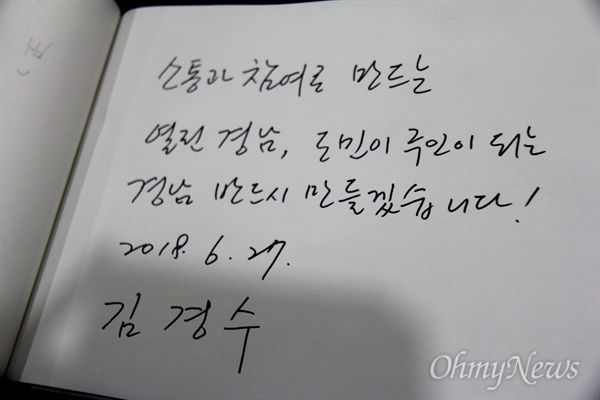 소통과 참여로 만드는
열린 경남, 도민이 주인이 되는
경남 반드시 만들겠습니다!
2018. 6. 27.
김경수
OhmyNews